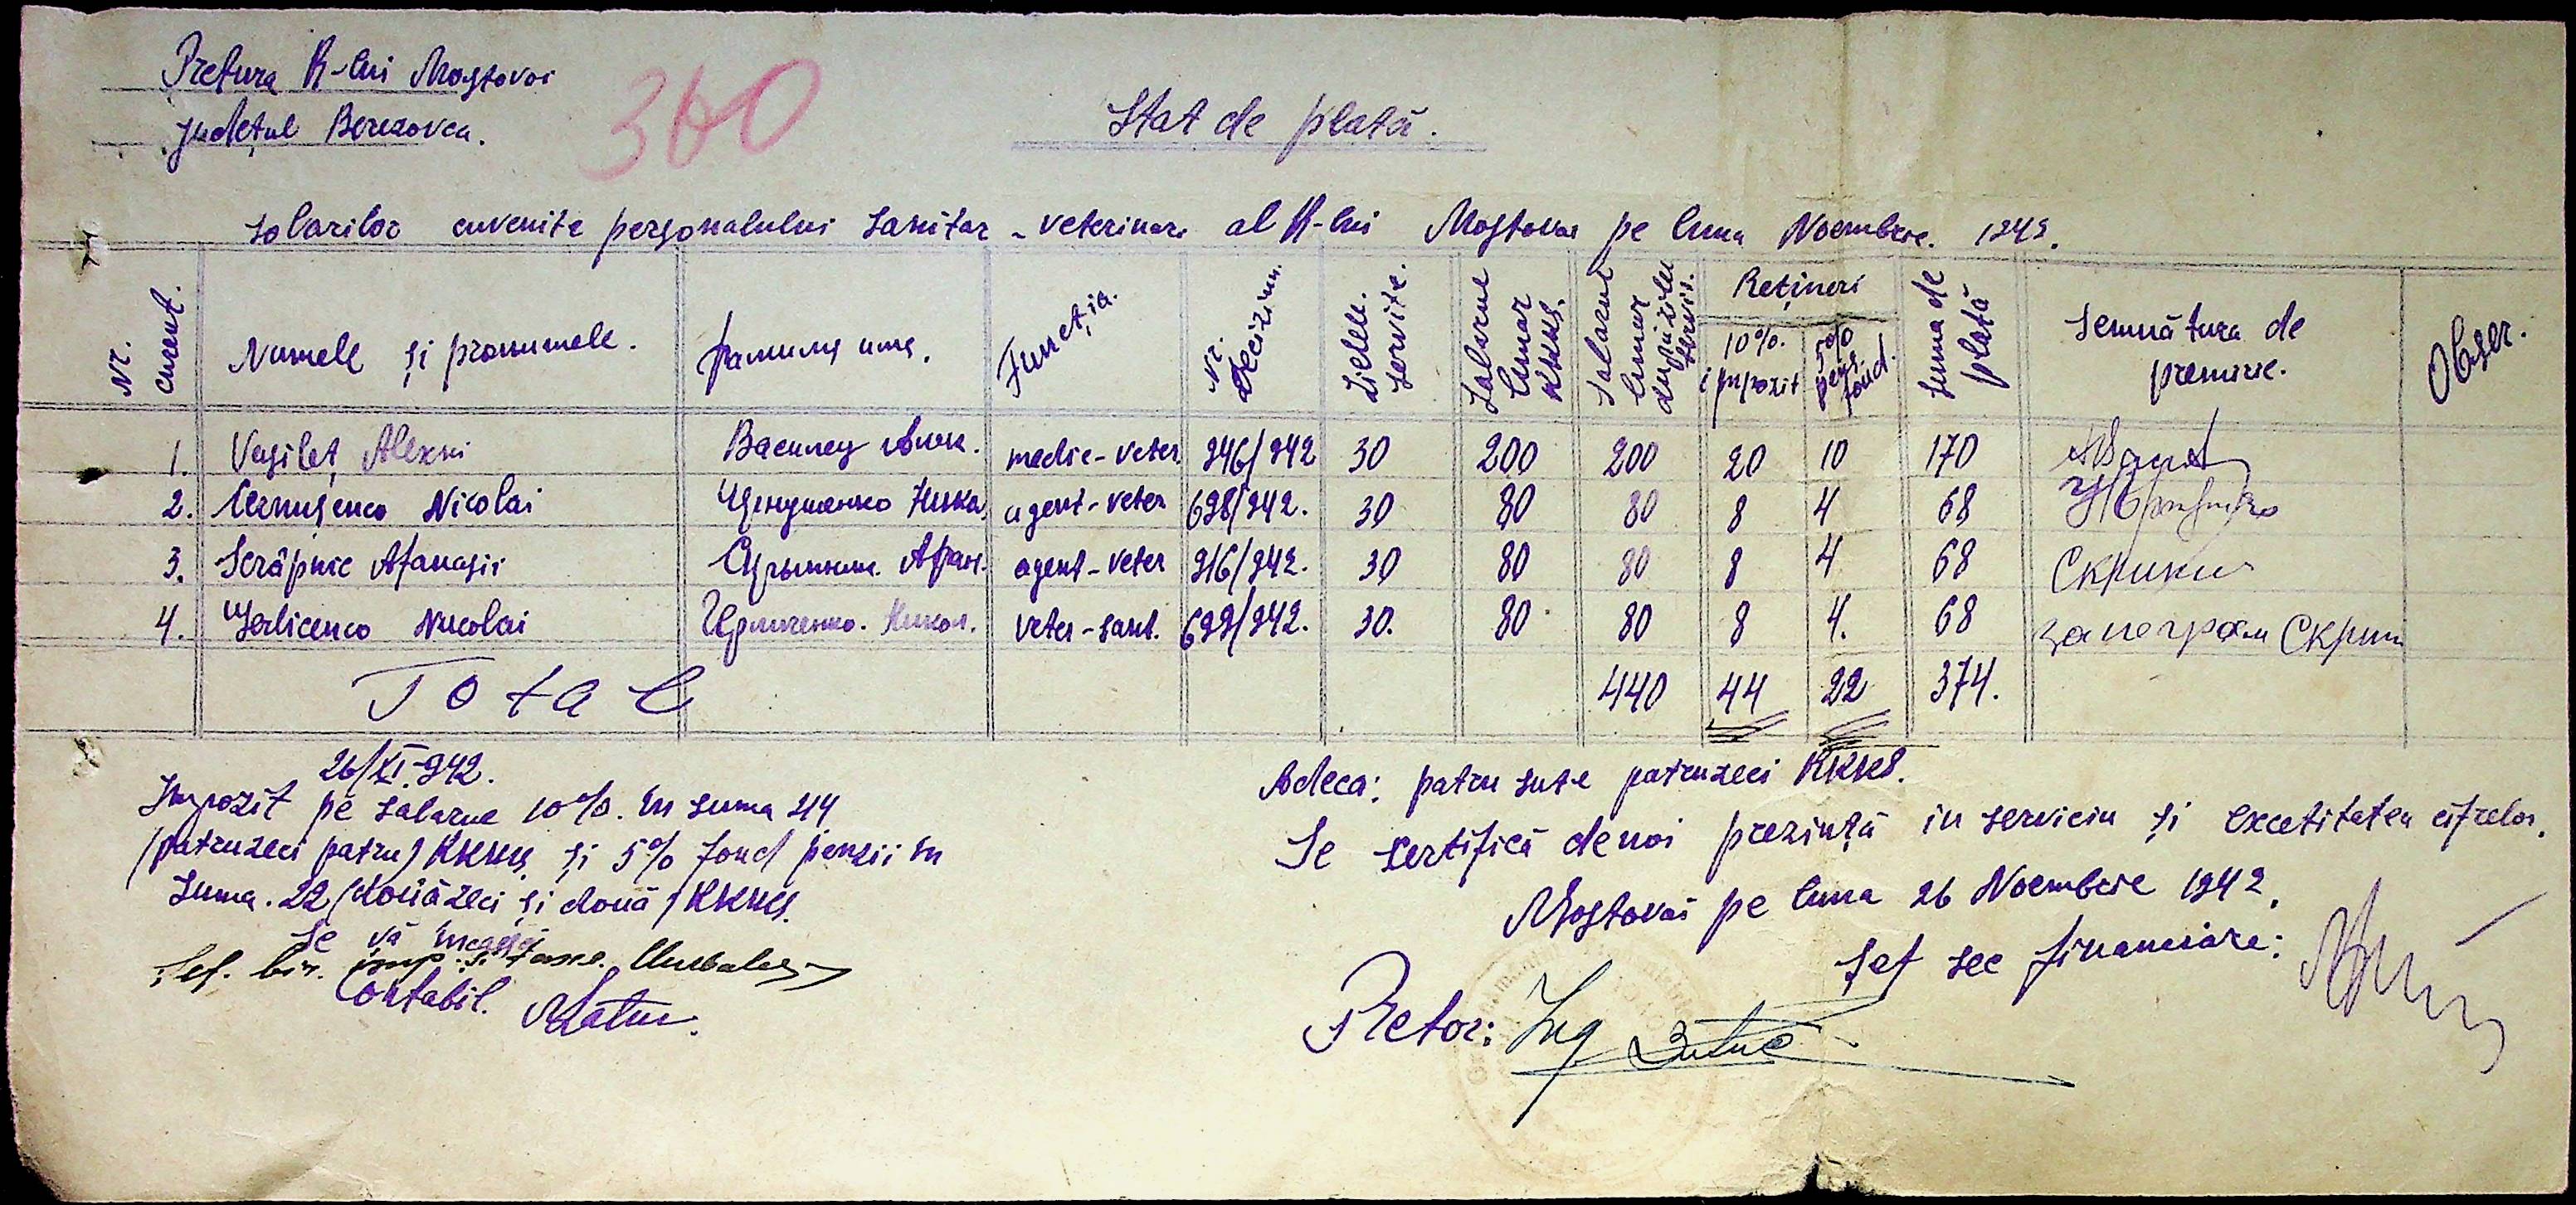 Pretura R-lui Mostovoi
360
județul Berezovca.
Stat de plată.
salarilor cuvenite personalului sanitar-veterinar al R-lui Mostovoi pe luna Noembrie. 1942.
Nr. curent. Numele și pronumele. Фамилия имя. Funcția. Nr. Deciziun. Zilele. servite. Salarul lunar RKKS. Salarul lunar zile servit. Rețineri Suma de plată Semnătura de premire. Obser.
10%. impozit 5% pens. fond.
1. Vasileț Alexei Василец Алек. medic-veter 946/942 30 200 200 20 10 170
2. Cernușenco Nicolai Чернушенко Никол. agent-veter 698/942. 30 80 80 8 4 68
3. Scrâpnic Afanasii Скрыпник. Афан. agent-veter 916/942. 30 80 80 8 4 68 Скрипник
4. Nicolai Никол. veter-sant. 699/942. 30. 80 80 8 4. 68 Скрип
Total 440 44 22 374.
26/XI-942.
Impozit pe salarue 10%. în suma 44
(patruzeci patru) RKKS. și 5% fond pensii în
suma. 22 (douăzeci și două) RKKS.
se vă
Șef. bir. imp. și taxe.
Contabil.
Adeca: patru sute patruzeci RKKS.
Se sertifică de noi prezință in serviciu și excetitatea cifrelor.
Mostovoi pe luna 26 Noembrie 1942.
Șef sec financiare:
Pretor: Ing